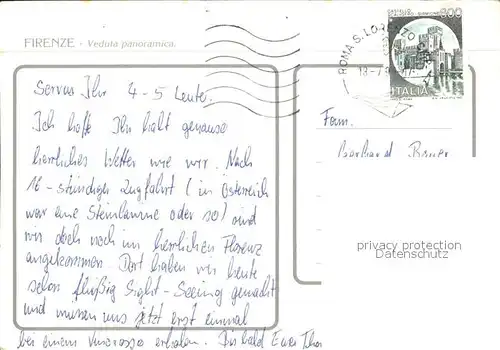 FIRENZE - Veduta panoramica.
ROMA S. LORENZO
800
ITALIA
Servus Ihr 4-5 Leute.
Ich hoffe Ihr habt genauso
herrliches Wetter wie wir. Nach
16-stündiger Zugfahrt (in Österreich
war eine Steinlawine oder so) sind
wir doch noch im herrlichen Florenz
angekommen. Dort haben wir heute
schon fleißig Sight-Seeing gemacht
und müssen uns jetzt erst einmal
bei einem erholen. Bis bald Euer
Fam.
Gerhard
privacy protection
Datenschutz